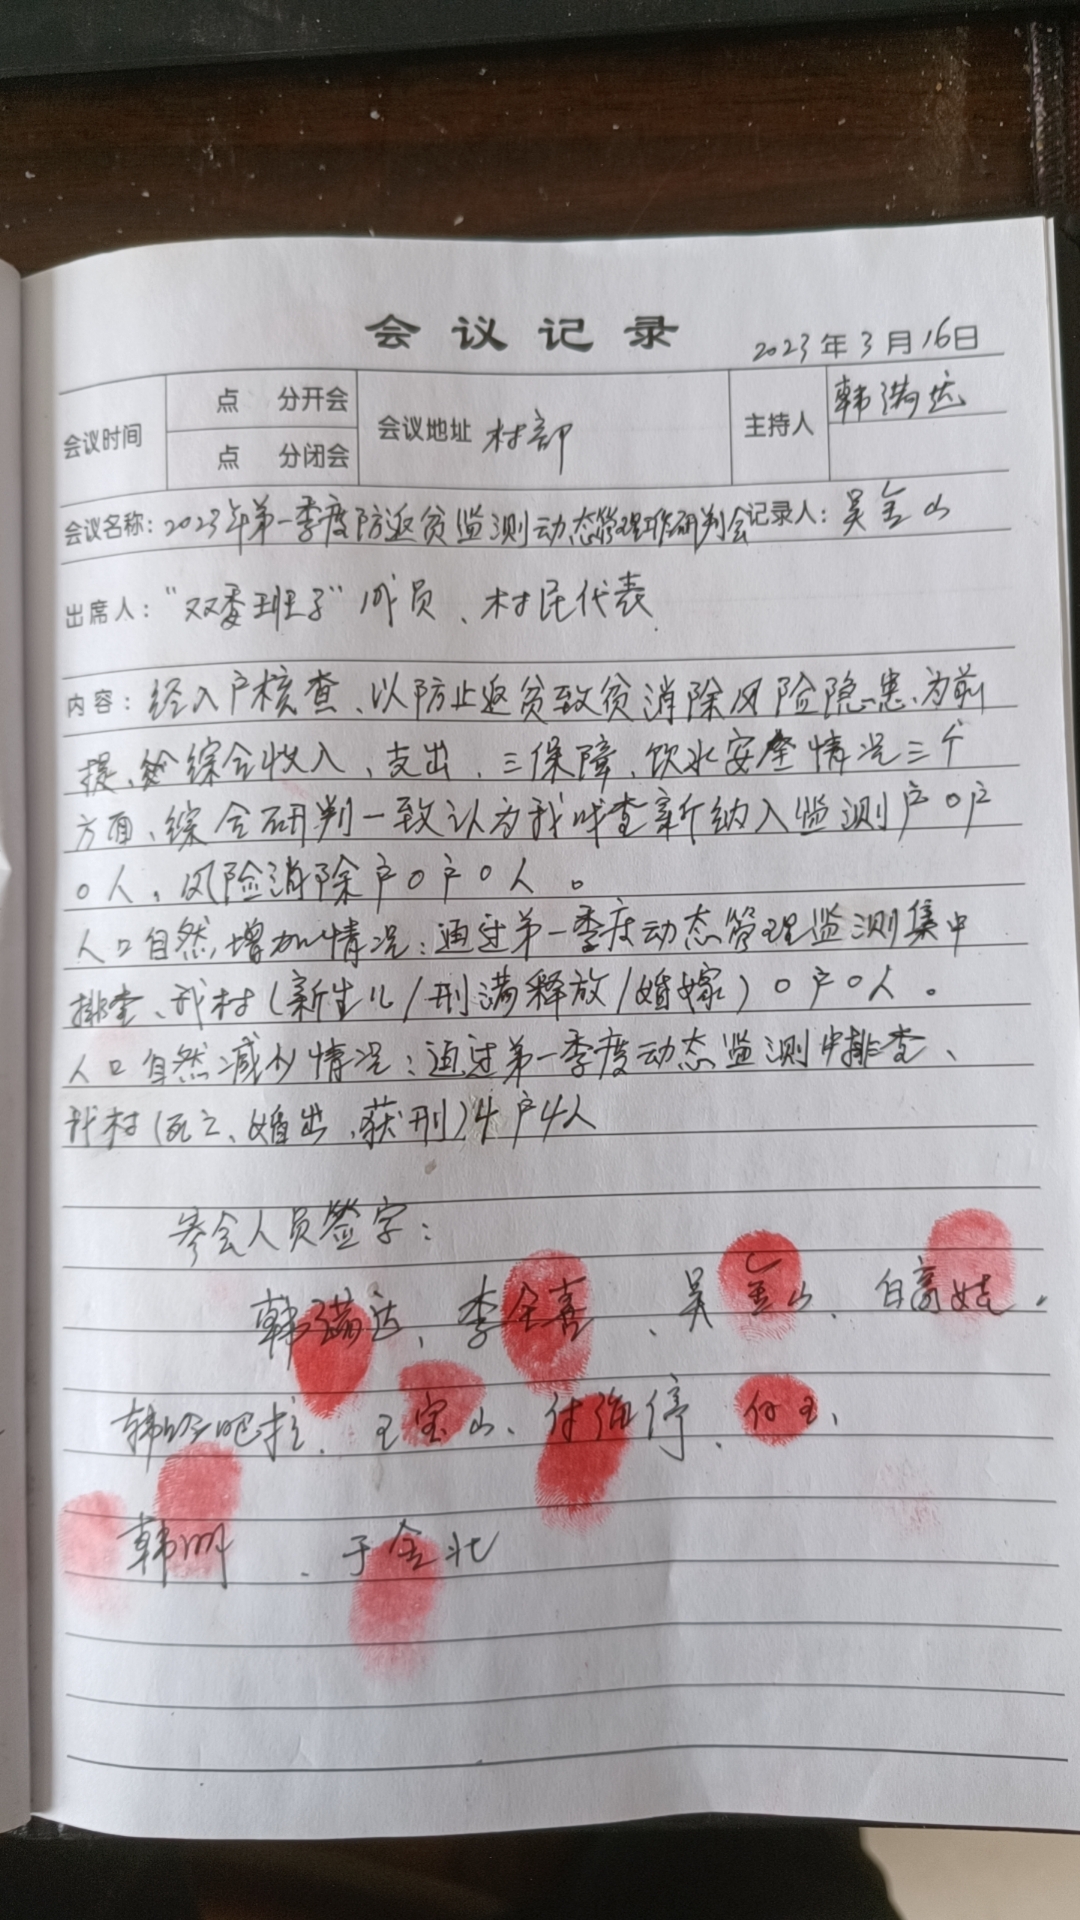 会议记录
2023年3月16日
会议时间 点 分开会 会议地址 村部 主持人 韩满达
点 分闭会
会议名称：2023年第一季度防返贫监测动态管理工作研判会 记录人：吴金山
出席人："双委班子"成员、村民代表
内容：经入户核查、以防止返贫致贫消除风险隐患、为前
提、综合收入、支出、三保障、饮水安全情况三个
方面、综合研判一致认为我嘎查新纳入监测户0户
0人。风险消除户0户0人。
人口自然增加情况：通过第一季度动态管理监测集中
排查、我村(新生儿/刑满释放/婚嫁)0户0人。
人口自然减少情况：通过第一季度动态监测中排查、
我村(死亡、婚出、获刑)4户4人
参会人员签字：
韩满达、李金喜、吴金山、白高娃。
韩 吧拉、王宝山、付 停、付玉、
韩明、于金北